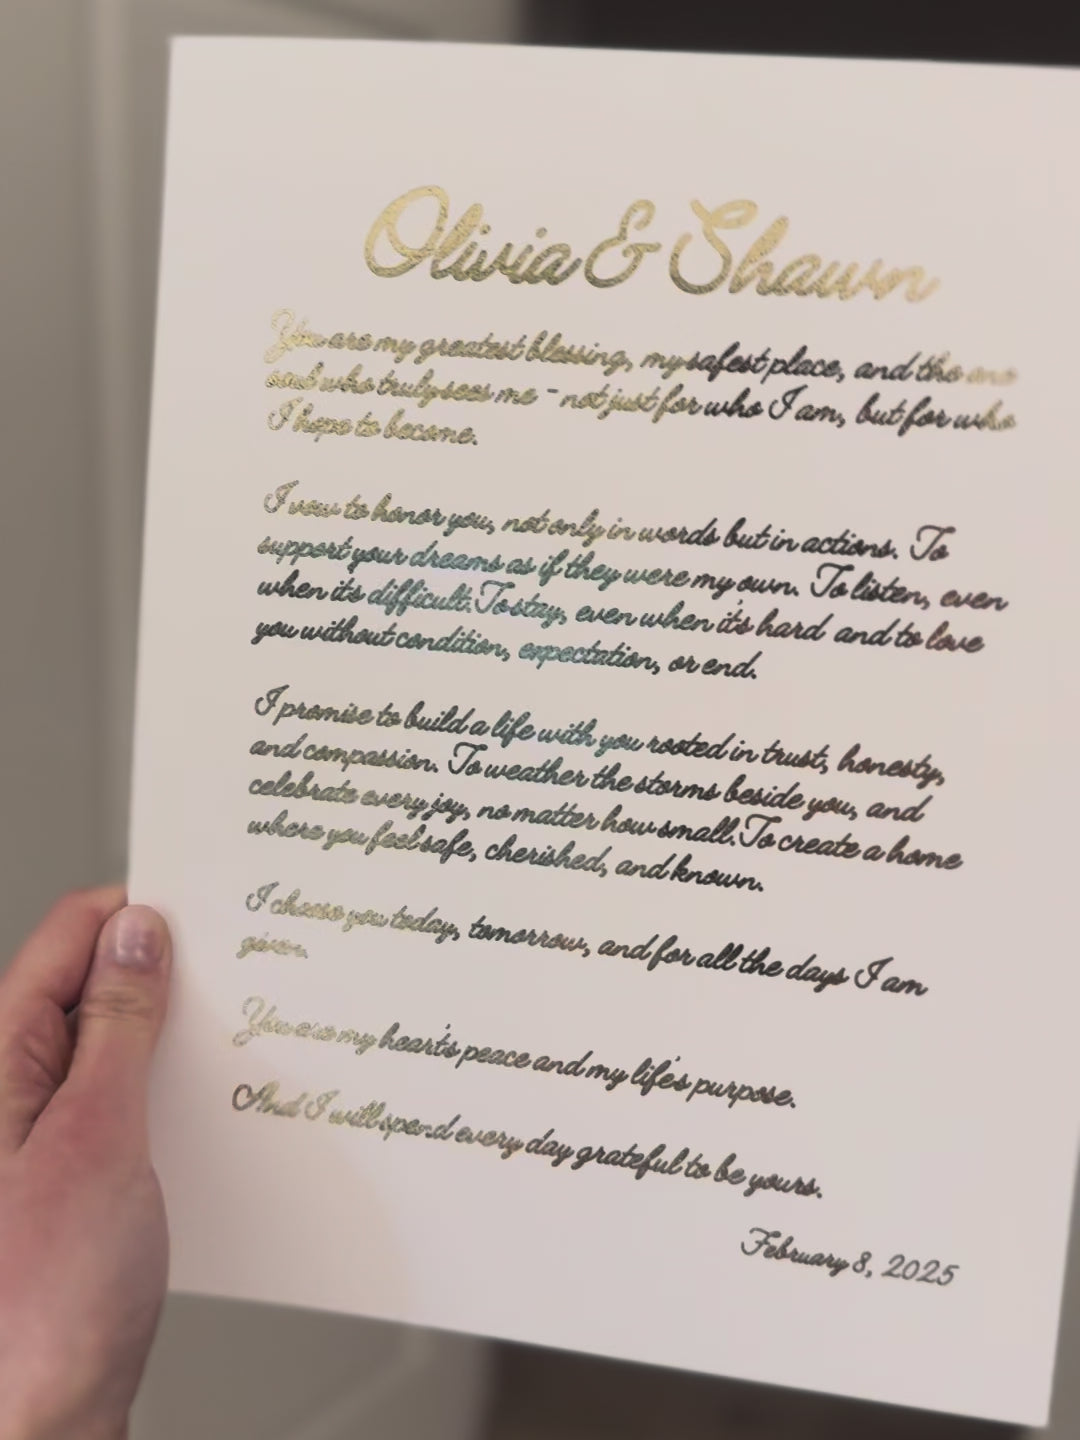 Olivia & Shawn
You are my greatest blessing, my safest place, and the one
soul who truly sees me - not just for who I am, but for who
I hope to become.
I vow to honor you, not only in words but in actions. To
support your dreams as if they were my own. To listen, even
when it's difficult. To stay, even when it's hard and to love
you without condition, expectation, or end.
I promise to build a life with you rooted in trust, honesty,
and compassion. To weather the storms beside you, and
celebrate every joy, no matter how small. To create a home
where you feel safe, cherished, and known.
I choose you today, tomorrow, and for all the days I am
given.
You are my heart's peace and my life's purpose.
And I will spend every day grateful to be yours.
February 8, 2025